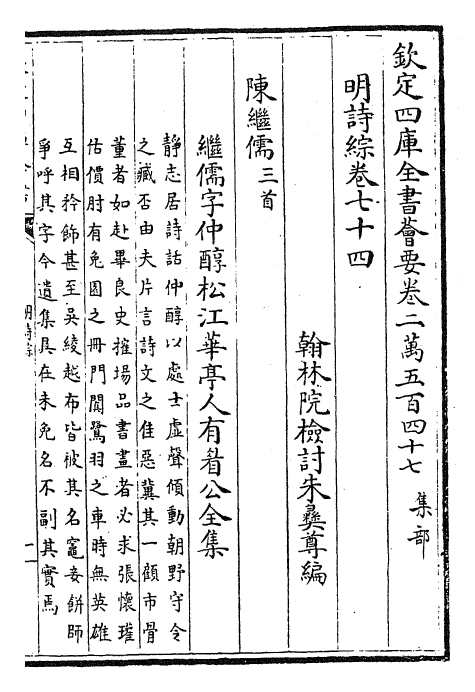 欽定四庫全書薈要卷二萬五百四十七 集部
明詩綜卷七十四
翰林院檢討朱彝尊編
陳繼儒三首
繼儒字仲醇松江華亭人有眉公全集
靜志居詩話仲醇以處士虛聲傾動朝野守令
之臧否由夫片言詩文之佳惡冀其一顧市骨
董者如赴畢良史搉場品書畫者必求張懷瓘
估價肘有兔園之冊門闐鷺羽之車時無英雄
互相矜飾甚至吳綾越布皆被其名竈妾餅師
爭呼其字今遺集具在未免名不副其實焉